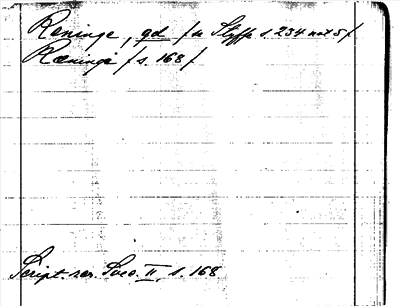 Reninge, gd /se Styffe s. 234 not 5/
Ræninge /s. 168/
Script. rer. Svec. II, s. 168